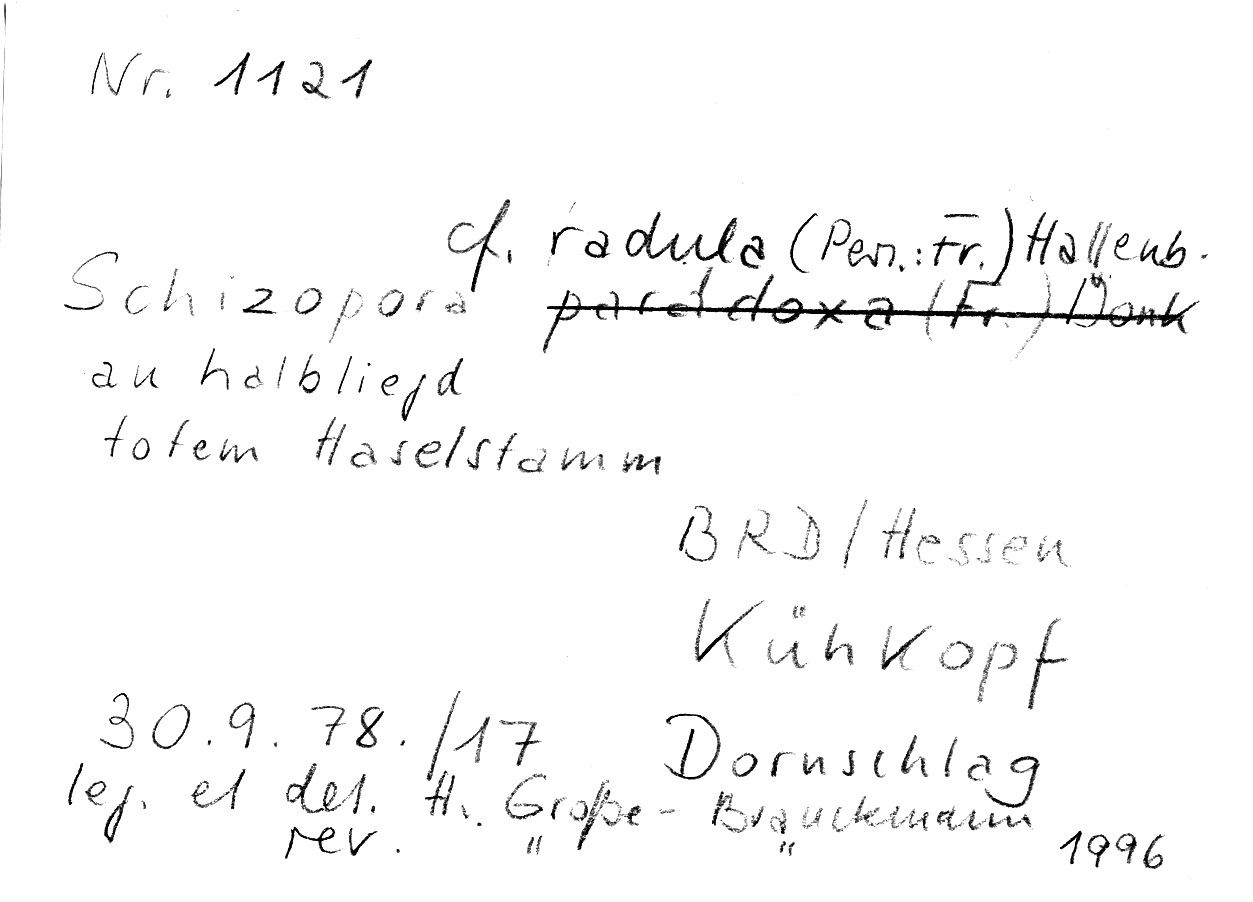 Nr. 1121
cf. radula (Pers.: Fr.) Hallenb.
Schizopora paradoxa (Fr.) Donk
an halbliegd
totem Haselstamm
BRD/Hessen
Kühkopf
30.9.78./17 Dornschlag
leg. et det. H. Große-Brauckmann
rev. " " 1996